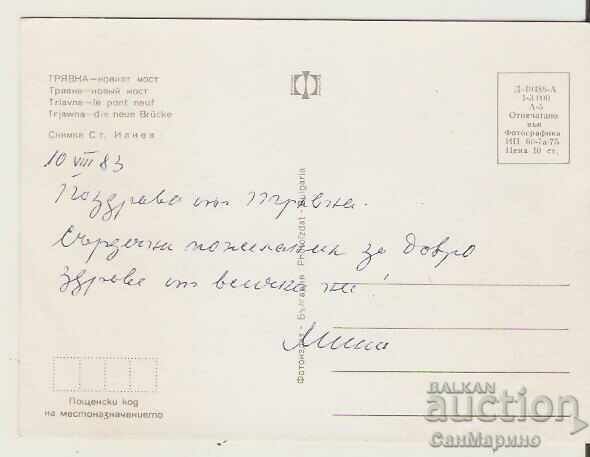 ТРЯВНА — новият мост
Трявна — новый мост
Triavna — le pont neuf
Trjawna — die neue Brücke
Снимка Ст. Илиев
10 VIII 83
Поздрави от Трявна.
Сърдечни пожелания за добро
здраве от всички ни!
Миша
Фотоиздат - България - Photoizdat - Bulgaria
Пощенски код
на местоназначението
Отпечатано
във
Фотографика
Цена 10 ст.
BALKAN
auction
СанМарино